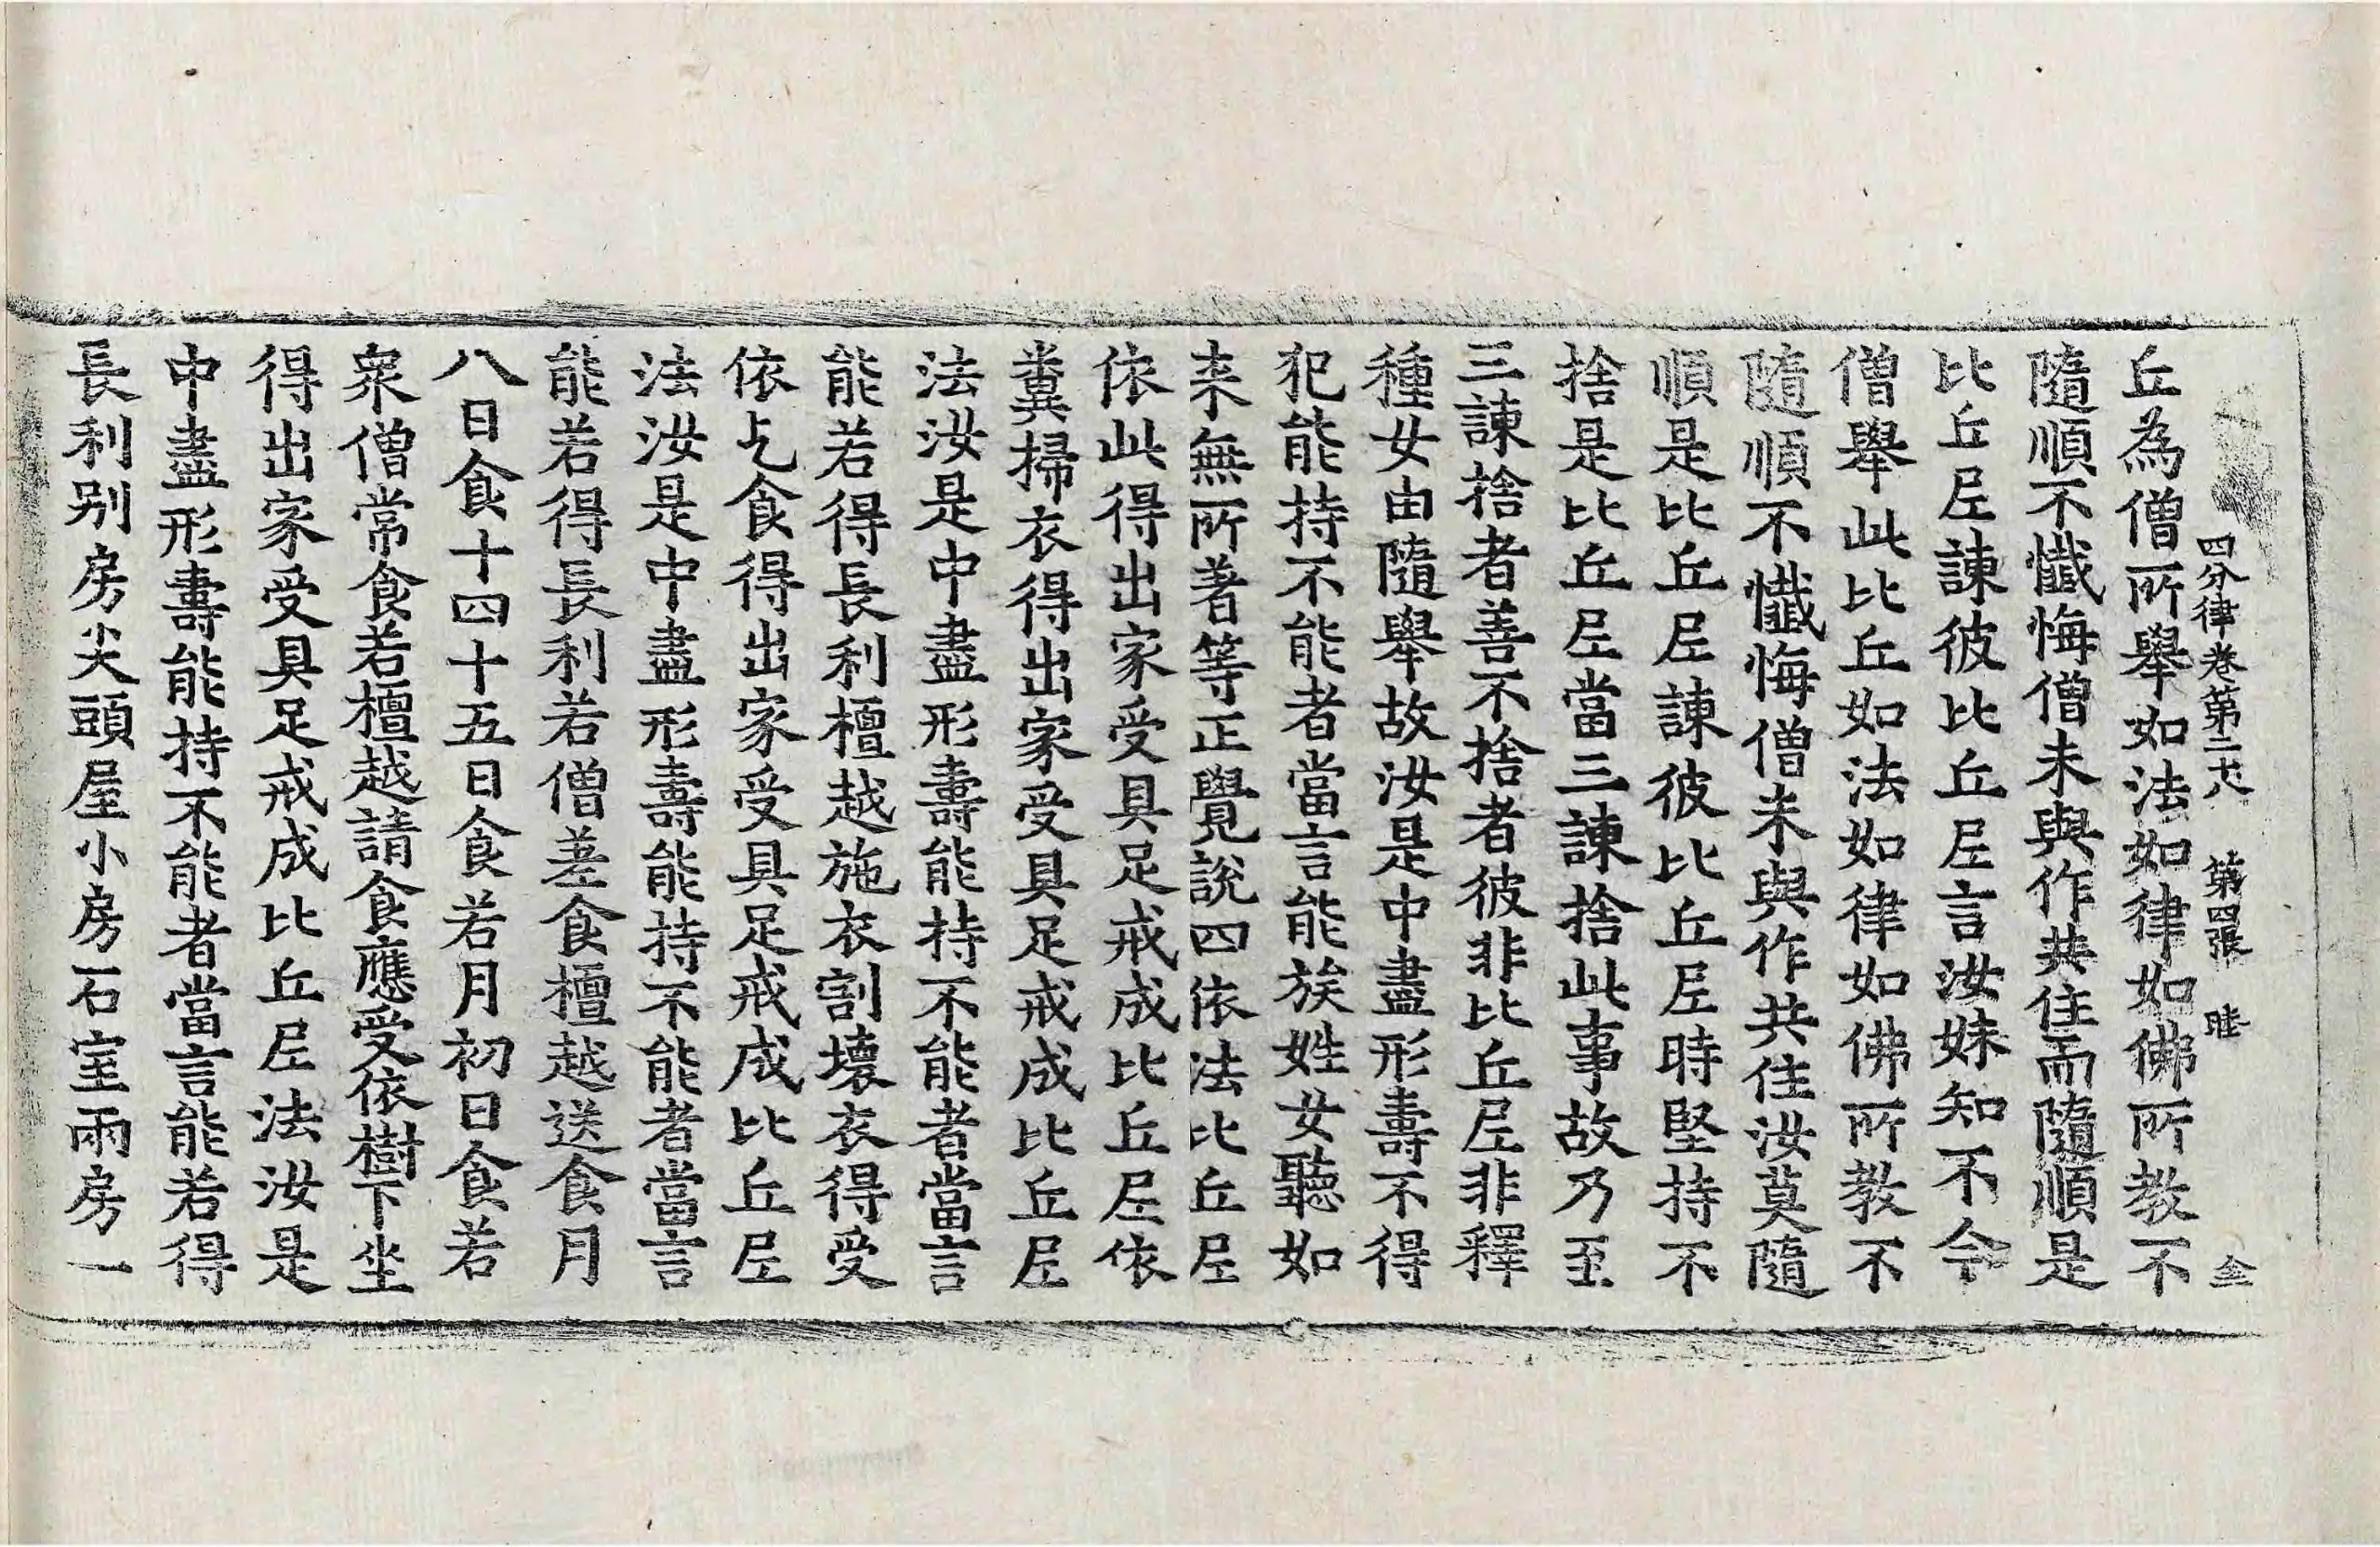 四分律卷第二十八 第四張 睦 金
丘為僧所舉如法如律如佛所教不
隨順不懺悔僧未與作共住而隨順是
比丘尼諫彼比丘尼言汝妹知不今
僧舉此比丘如法如律如佛所教不
隨順不懺悔僧未與作共住汝莫隨
順是比丘尼諫彼比丘尼時堅持不
捨是比丘尼當三諫捨此事故乃至
三諫捨者善不捨者彼非比丘尼非釋
種女由隨舉故汝是中盡形壽不得
犯能持不能者當言能族姓女聽如
来無所著等正覺說四依法比丘尼
依此得出家受具足戒成比丘尼依
糞掃衣得出家受具足戒成比丘尼
法汝是中盡形壽能持不能者當言
能若得長利檀越施衣割壞衣得受
依乞食得出家受具足戒成比丘尼
法汝是中盡形壽能持不能者當言
能若得長利若僧差食檀越送食月
八日食十四十五日食若月初日食若
衆僧常食若檀越請食應受依樹下坐
得出家受具足戒成比丘尼法汝是
中盡形壽能持不能者當言能若得
長利别房尖頭屋小房石室兩房一